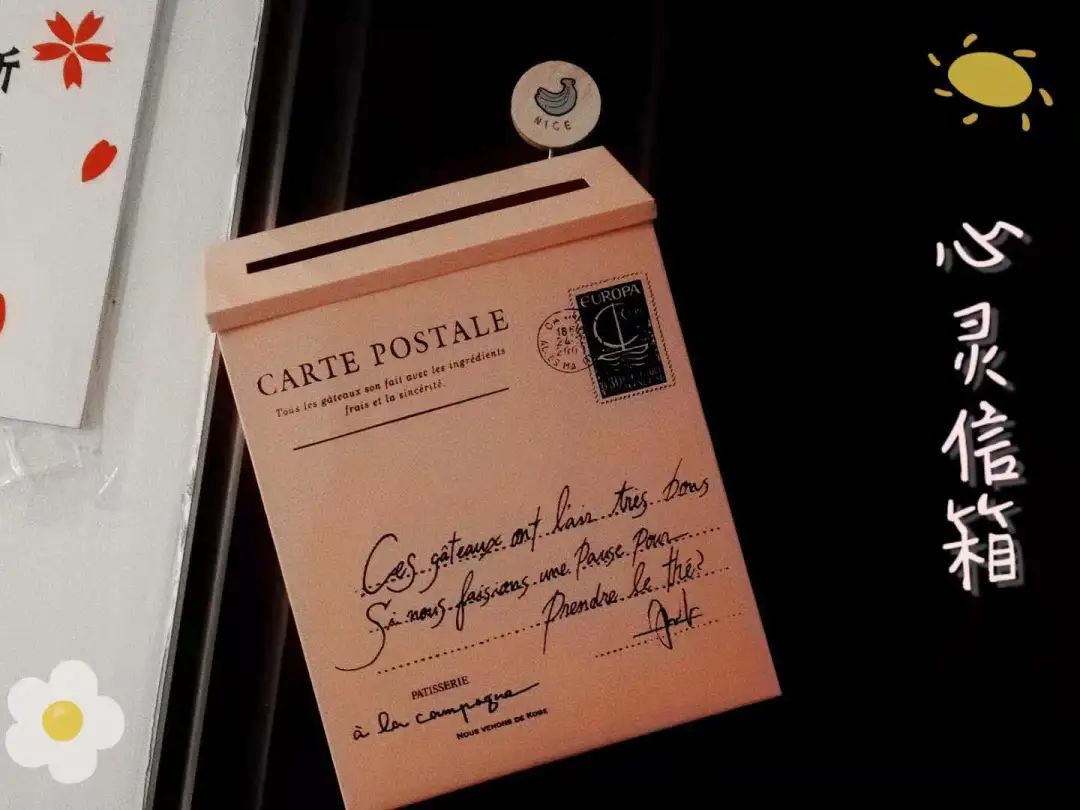 NICE
CARTE POSTALE
Tous les gâteaux son fait avec les ingrédients
frais et la sincérité.
EUROPA
Ces gâteaux ont l'air très bons
Si nous faisions une Pause Pour
Prendre le thé?
PATISSERIE
à la campagne
NOUS VENONS DE KOBE
心灵信箱